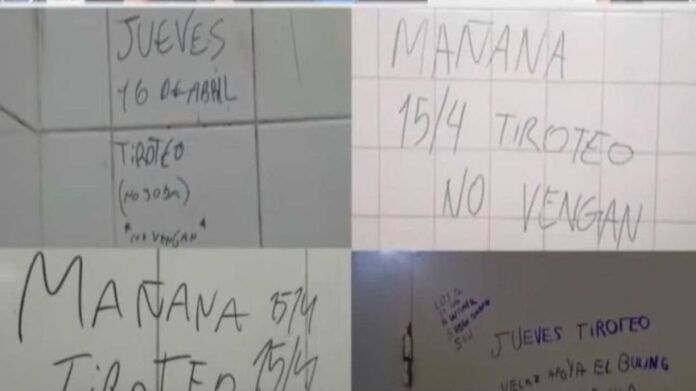 JUEVES
16 DE ABRIL
TIROTEO
(NO JODA)
*NO VENGAN*
MAÑANA
15/4 TIROTEO
NO VENGAN
MAÑANA 15/4
TIROTEO 15/4
JUEVES TIROTEO
VELAZ APOYA EL BULING